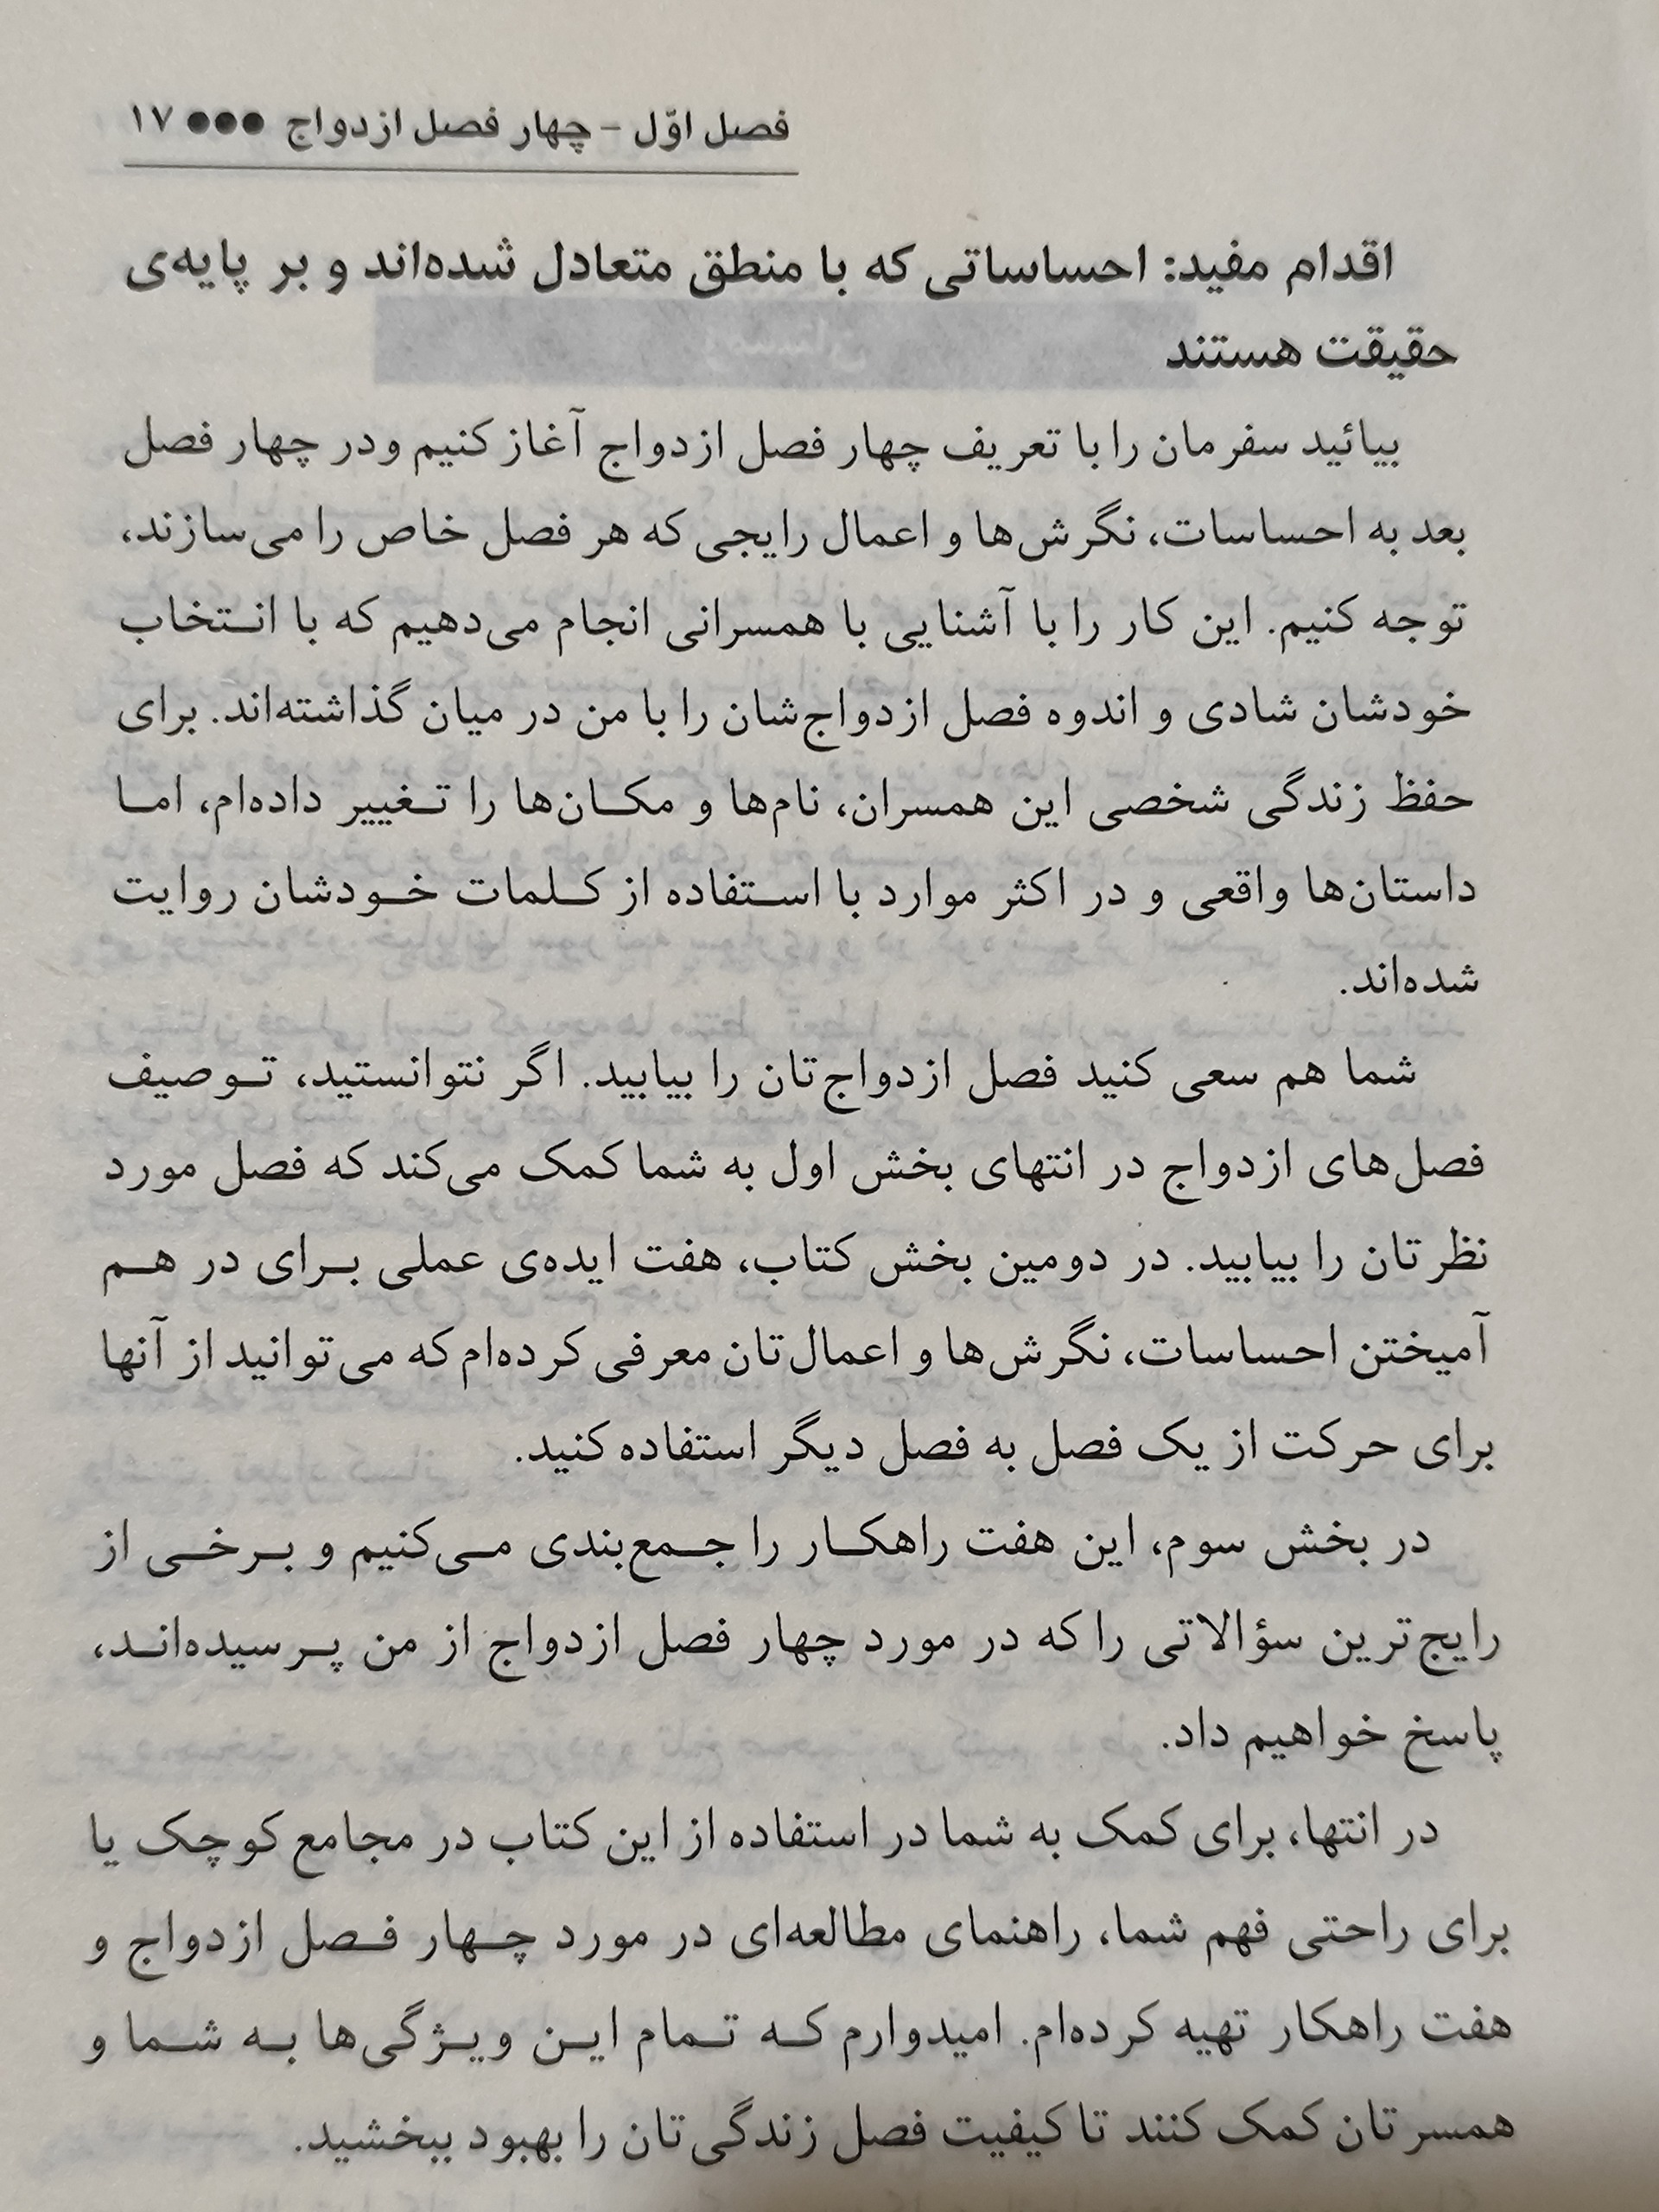 فصل اوّل - چهار فصل ازدواج ●●● ۱۷
اقدام مفید: احساساتی که با منطق متعادل شده‌اند و بر پایه‌ی
حقیقت هستند
بیائید سفرمان را با تعریف چهار فصل ازدواج آغاز کنیم ودر چهار فصل
بعد به احساسات، نگرش‌ها و اعمال رایجی که هر فصل خاص را می‌سازند،
توجه کنیم. این کار را با آشنایی با همسرانی انجام می‌دهیم که با انتخاب
خودشان شادی و اندوه فصل ازدواج‌شان را با من در میان گذاشته‌اند. برای
حفظ زندگی شخصی این همسران، نام‌ها و مکان‌ها را تغییر داده‌ام، اما
داستان‌ها واقعی و در اکثر موارد با استفاده از کلمات خودشان روایت
شده‌اند.
شما هم سعی کنید فصل ازدواج‌تان را بیابید. اگر نتوانستید، توصیف
فصل‌های ازدواج در انتهای بخش اول به شما کمک می‌کند که فصل مورد
نظرتان را بیابید. در دومین بخش کتاب، هفت ایده‌ی عملی برای در هم
آمیختن احساسات، نگرش‌ها و اعمال‌تان معرفی کرده‌ام که می‌توانید از آنها
برای حرکت از یک فصل به فصل دیگر استفاده کنید.
در بخش سوم، این هفت راهکار را جمع‌بندی می‌کنیم و برخی از
رایج‌ترین سؤالاتی را که در مورد چهار فصل ازدواج از من پرسیده‌اند،
پاسخ خواهیم داد.
در انتها، برای کمک به شما در استفاده از این کتاب در مجامع کوچک یا
برای راحتی فهم شما، راهنمای مطالعه‌ای در مورد چهار فصل ازدواج و
هفت راهکار تهیه کرده‌ام. امیدوارم که تمام این ویژگی‌ها به شما و
همسرتان کمک کنند تا کیفیت فصل زندگی‌تان را بهبود ببخشید.